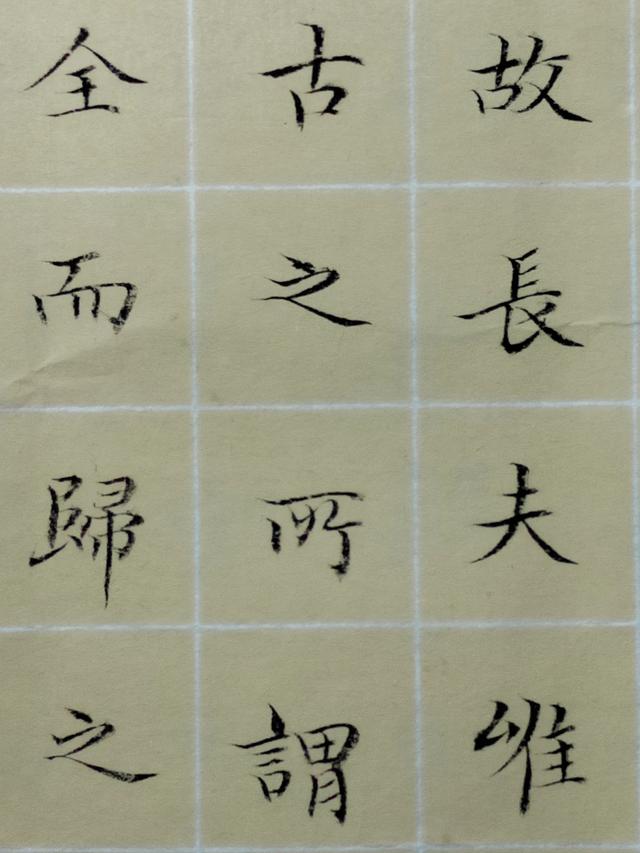 故長夫唯
古之所謂
全而歸之